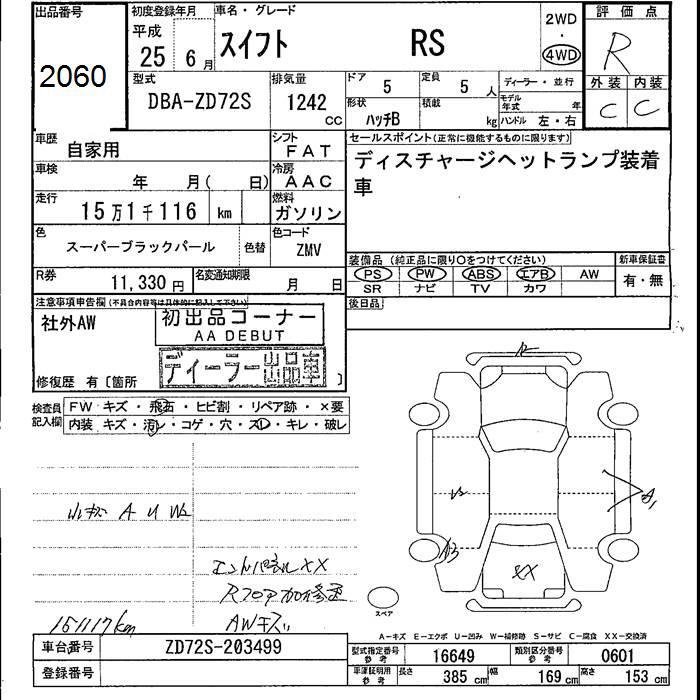 出品番号
2060
初度登録年月
平成
25 6 月
車名・グレード
スイフト RS
2WD
・
4WD
評価点
R
外装 内装
C C
型式
DBA-ZD72S
排気量
1242 CC
ドア 5
定員 5 人
形状 ハッチB
積載 kg
ディーラー・並行
モデル年式 年
ハンドル 左・右
車歴
自家用
シフト
FAT
車検
年 月( 日)
冷房
AAC
走行
15万1千116 km
燃料
ガソリン
色
スーパーブラックパール
色替
色コード
ZMV
R券
11,330 円
名変通知期限
月 日
セールスポイント(正常に機能するものに限ります)
ディスチャージヘットランプ装着
車
装備品 (純正品に限り○をつけてください)
PS PW ABS エアB AW
SR ナビ TV カワ
新車保証書
有・無
後日品
注意事項申告欄(不具合内容等は具体的に記入して下さい)
社外AW
初出品コーナー
AA DEBUT
ディーラー出品車
修復歴 有〔箇所 〕
検査員
記入欄
FW キズ・飛石・ヒビ割・リペア跡・×要
内装 キズ・汚レ・コゲ・穴・スレ・キレ・破レ
小キズ A U W2
エンドパネルXX
Rフロア加修歴
151117km
AWキズ
A1
XX
スペア
A−キズ E−エクボ U−凹み W−補修跡 S−サビ C−腐食 XX−交換済
車台番号
ZD72S-203499
登録番号
型式指定番号
参考
16649
類別区分番号
参考
0601
車庫証明用
参考
長さ 385 cm
幅 169 cm
高さ 153 cm